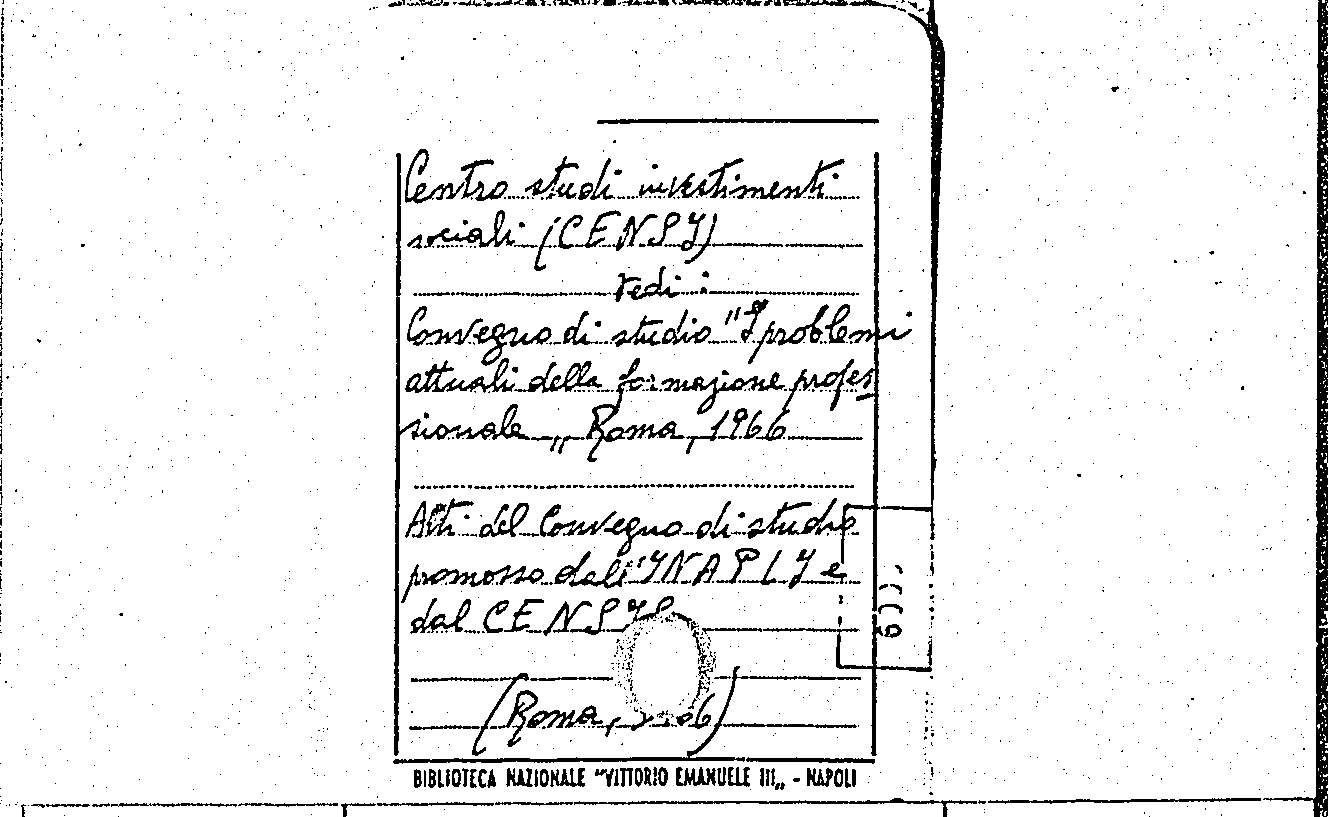 Centro studi investimenti
sociali (CENSI)
vedi :
Convegno di studio "I problemi
attuali della formazione profes
sionale „ Roma, 1966
Atti del Convegno di studio
promosso dall'INAPLI e
dal CENSIS
(Roma,
BIBLIOTECA NAZIONALE "VITTORIO EMANUELE III„ - NAPOLI